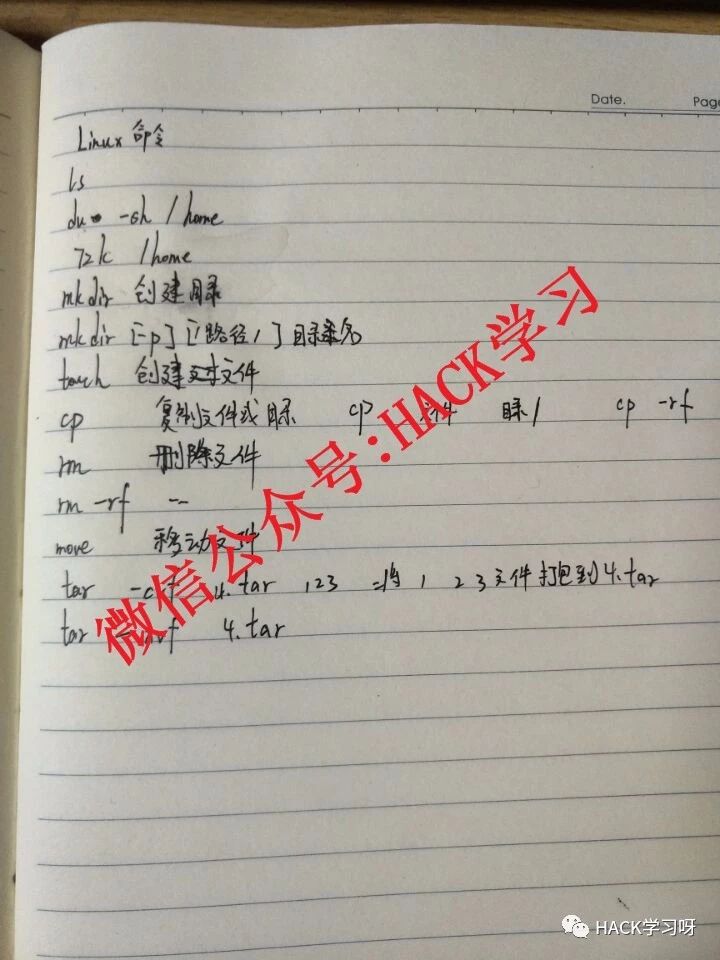 Date. Page
Linux 命令
ls
du -sh /home
72k /home
mkdir 创建目录
mkdir [-p] [/路径/] 目录名
touch 创建文件
cp 复制文件或目录 cp 文件 目录/ cp -rf
rm 删除文件
rm -rf --
move 移动文件
tar 4.tar 123 =将 1 2 3 文件打包到4.tar
tar 4.tar
微信公众号:HACK学习
HACK学习呀